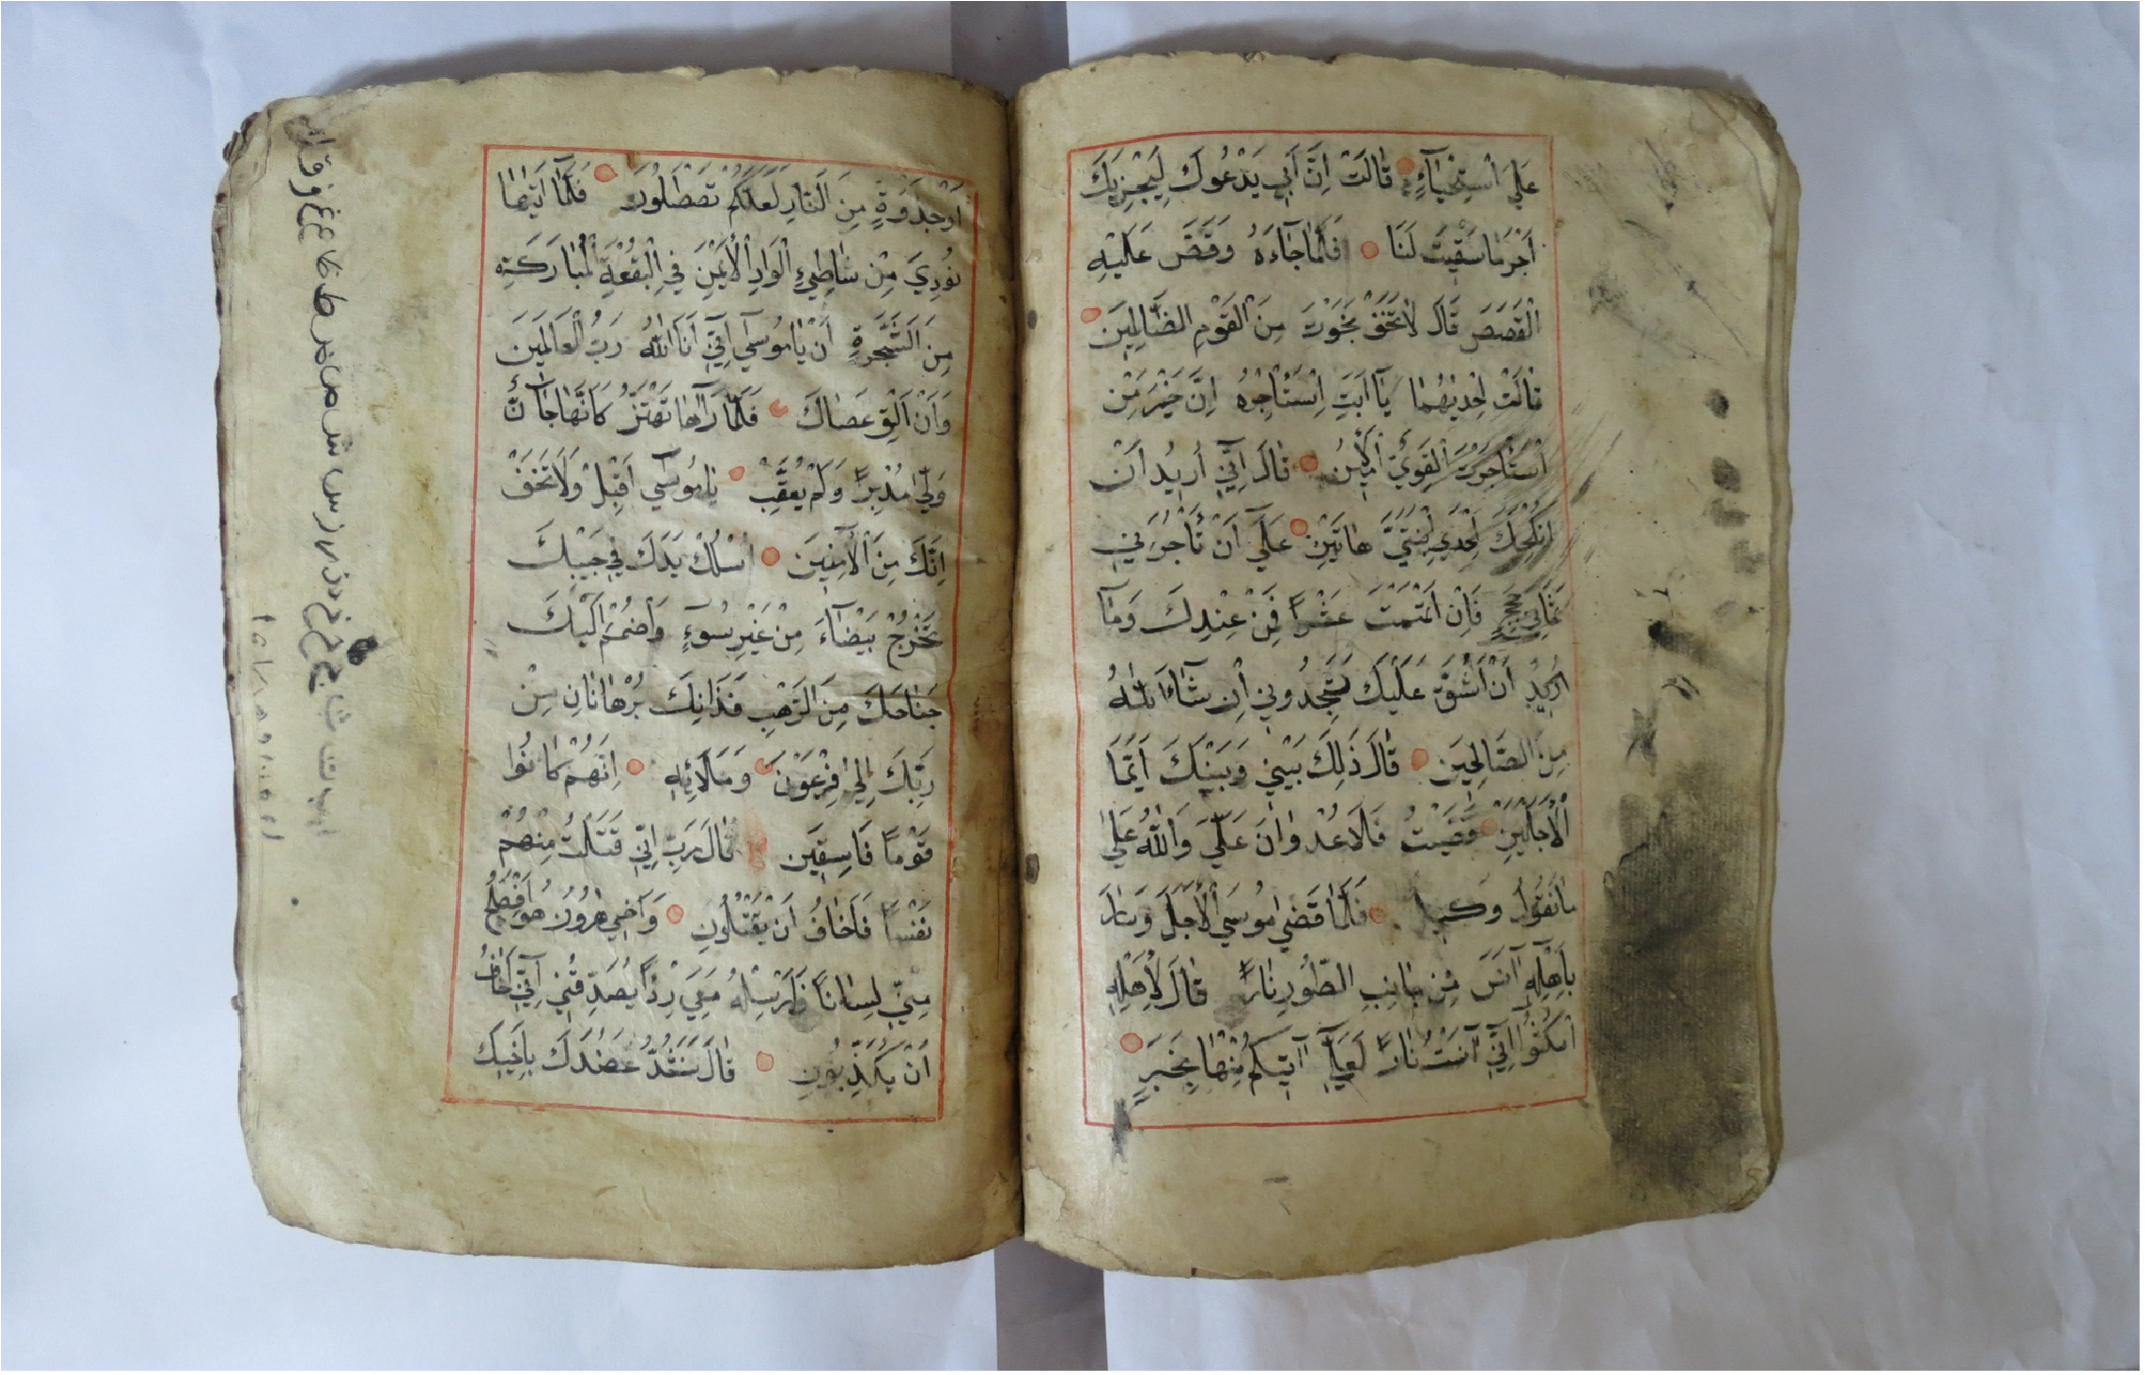 عَلَي اسْتِحْيَآءٍ قٰالَتْ اِنَّ اَبِي يَدْعُوكَ لِيَجْزِيَكَ
اَجْرَ مٰا سَقَيْتَ لَنَا فَلَمّٰا جٰآءَهُ وَقَصَّ عَلَيْهِ
الْقَصَصَ قٰالَ لٰا تَخَفْ نَجَوْتَ مِنَ الْقَوْمِ الظّٰالِمِينَ
قٰالَتْ اِحْدٰيهُمٰا يٰآ اَبَتِ اسْتَأْجِرْهُ اِنَّ خَيْرَ مَنِ
اسْتَأْجَرْتَ الْقَوِيُّ الْاَمِينُ قٰالَ اِنِّي اُرِيدُ اَنْ
اُنْكِحَكَ اِحْدَي ابْنَتَيَّ هٰاتَيْنِ عَلَي اَنْ تَأْجُرَنِي
ثَمٰانِيَ حِجَجٍ فَاِنْ اَتْمَمْتَ عَشْرًا فَمِنْ عِنْدِكَ وَمٰآ
اُرِيدُ اَنْ اَشُقَّ عَلَيْكَ سَتَجِدُونِي اِنْ شٰآءَ اللّٰهُ
مِنَ الصّٰالِحِينَ قٰالَ ذٰلِكَ بَيْنِي وَبَيْنَكَ اَيَّمَا
الْاَجَلَيْنِ قَضَيْتُ فَلَا عُدْوٰانَ عَلَيَّ وَاللّٰهُ عَلَيٰ
مٰا نَقُولُ وَكِيلٌ فَلَمّٰا قَضَيٰ مُوسَي الْاَجَلَ وَسٰارَ
بِاَهْلِهٖ اٰنَسَ مِنْ جٰانِبِ الطُّورِ نٰارًا قٰالَ لِاَهْلِهِ
امْكُثُوا اِنِّي اٰنَسْتُ نٰارًا لَعَلِّي اٰتِيكُمْ مِنْهٰا بِخَبَرٍ
اَوْ جَذْوَةٍ مِنَ النّٰارِ لَعَلَّكُمْ تَصْطَلُونَ فَلَمّٰا اَتٰيهٰا
نُودِيَ مِنْ شٰاطِئِ الْوَادِ الْاَيْمَنِ فِي الْبُقْعَةِ الْمُبٰارَكَةِ
مِنَ الشَّجَرَةِ اَنْ يٰا مُوسَي اِنِّي اَنَا اللّٰهُ رَبُّ الْعٰالَمِينَ
وَاَنْ اَلْقِ عَصٰاكَ فَلَمّٰا رَاٰهٰا تَهْتَزُّ كَاَنَّهٰا جٰآنٌّ
وَلّٰي مُدْبِرًا وَلَمْ يُعَقِّبْ يٰا مُوسَي اَقْبِلْ وَلَا تَخَفْ
اِنَّكَ مِنَ الْاٰمِنِينَ اُسْلُكْ يَدَكَ فِي جَيْبِكَ
تَخْرُجْ بَيْضٰآءَ مِنْ غَيْرِ سُوءٍ وَاضْمُمْ اِلَيْكَ
جَنٰاحَكَ مِنَ الرَّهْبِ فَذٰانِكَ بُرْهٰانٰانِ مِنْ
رَبِّكَ اِلٰي فِرْعَوْنَ وَمَلَائِهٖ اِنَّهُمْ كٰانُوا
قَوْمًا فَاسِقِينَ قٰالَ رَبِّ اِنِّي قَتَلْتُ مِنْهُمْ
نَفْسًا فَاَخٰافُ اَنْ يَقْتُلُونِ وَاَخِي هٰرُونُ هُوَ اَفْصَحُ
مِنِّي لِسٰانًا فَاَرْسِلْهُ مَعِيَ رِدْءًا يُصَدِّقُنِي اِنِّي اَخٰافُ
اَنْ يُكَذِّبُونِ قٰالَ سَنَشُدُّ عَضُدَكَ بِاَخِيكَ
ا ب ت ث ج ح خ د ذ ر ز س ش ص ض ط ظ ع غ ف ق